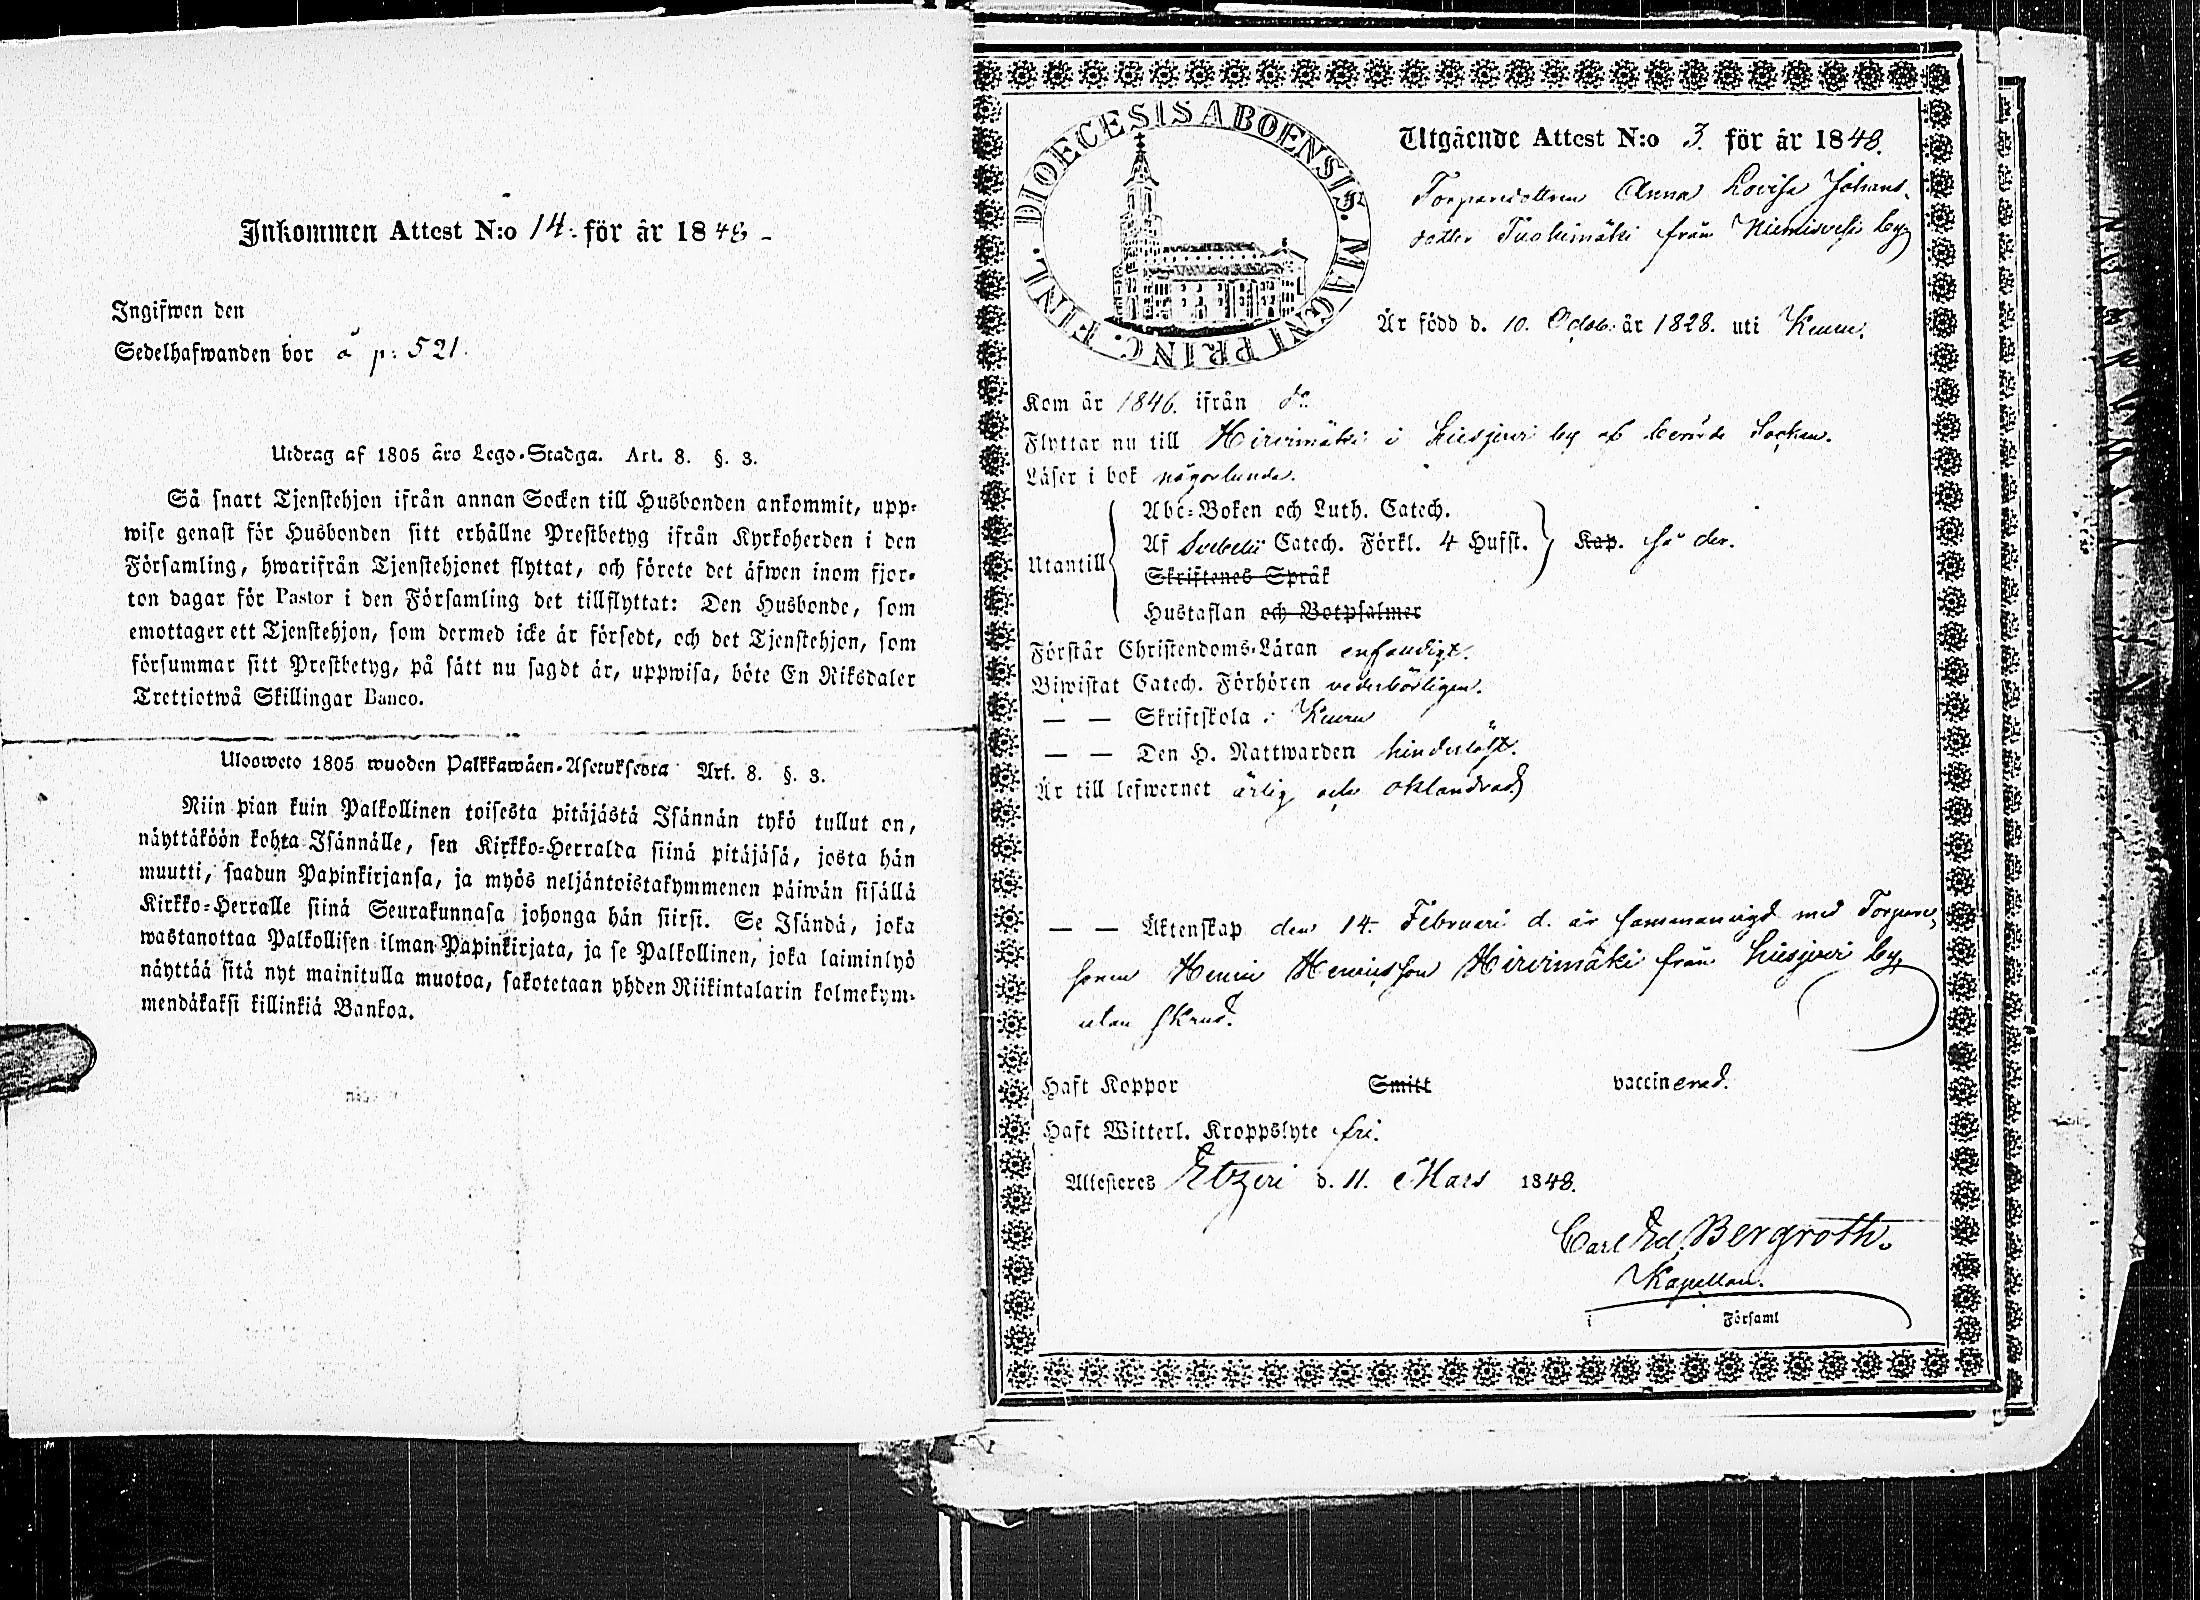 Inkommen Attest N:o 14. för år 1848.
Ingifwen den
Sedelhafwanden bor å p: 521.
Utdrag af 1805 års Lego-Stadga. Art. 8. §. 3.
Så snart Tjenstehjon ifrån annan Socken till Husbonden ankommit, upp-
wise genast för Husbonden sitt erhållne Prestbetyg ifrån Kyrkoherden i den
Församling, hwarifrån Tjenstehjonet flyttat, och förete det äfwen inom fjor-
ton dagar för Pastor i den Församling det tillflyttat: Den Husbonde, som
emottager ett Tjenstehjon, som dermed icke är försedt, och det Tjenstehjon, som
försummar sitt Prestbetyg, på sätt nu sagdt är, uppwisa, böte En Riksdaler
Trettiotwå Skillingar Banco.
Ulosweto 1805 wuoden Palkkawäen-Asetuksesta Art. 8. §. 3.
Niin pian kuin Palkollinen toisesta pitäjästä Isännän tykö tullut on,
näyttäköön kohta Isännälle, sen Kirkko-Herralda siinä pitäjäsä, josta hän
muutti, saadun Papinkirjansa, ja myös neljäntoistakymmenen päiwän sisällä
Kirkko-Herralle siinä Seurakunnasa johonga hän siirsi. Se Isändä, joka
wastanottaa Palkollisen ilman Papinkirjata, ja se Palkollinen, joka laiminlyö
näyttää sitä nyt mainitulla muotoa, sakotetaan yhden Riikintalarin kolmekym-
mendäkaksi killinkiä Bankoa.
DIOECESIS ABOENSIS. MAGNI PRINC. FINL.
Utgående Attest N:o 3. för år 1848.
Torparedottren Anna Lovisa Johans-
dotter Tuohimäki från Niemisvesi by
Är född d. 10. Octob. år 1828. uti Keuru.
Kom år 1846. ifrån d:o
Flyttar nu till Hirvimäki i Liesjervi by af berörde Socken.
Läser i bok någorlunda.
Utantill
Abc-Boken och Luth. Catech.
Af Svebelii Catech. Förkl. 4 Hufst.
Skriftenes Språk
Hustaflan och Botpsalmer
Kap. så der.
Förstår Christendoms-Läran enfaldigt.
Biwistat Catech. Förhören vederbörligen.
— — Skriftskola i Keuru
— — Den H. Nattwarden hinderlöst.
Är till lefwernet ärlig och oklandrad
— — Äktenskap den 14. Februari d. år sammanvigd med Torpare-
sonen Henric Henricsson Hirvimäki från Liesjervi by,
utan skrud.
Haft Koppor Smitt vaccinerad.
Haft Witterl. Kroppslyte fri.
Attesteres Etzeri d. 11. Mars 1848.
Carl Ed. Bergroth.
Kapellan.
i Församl